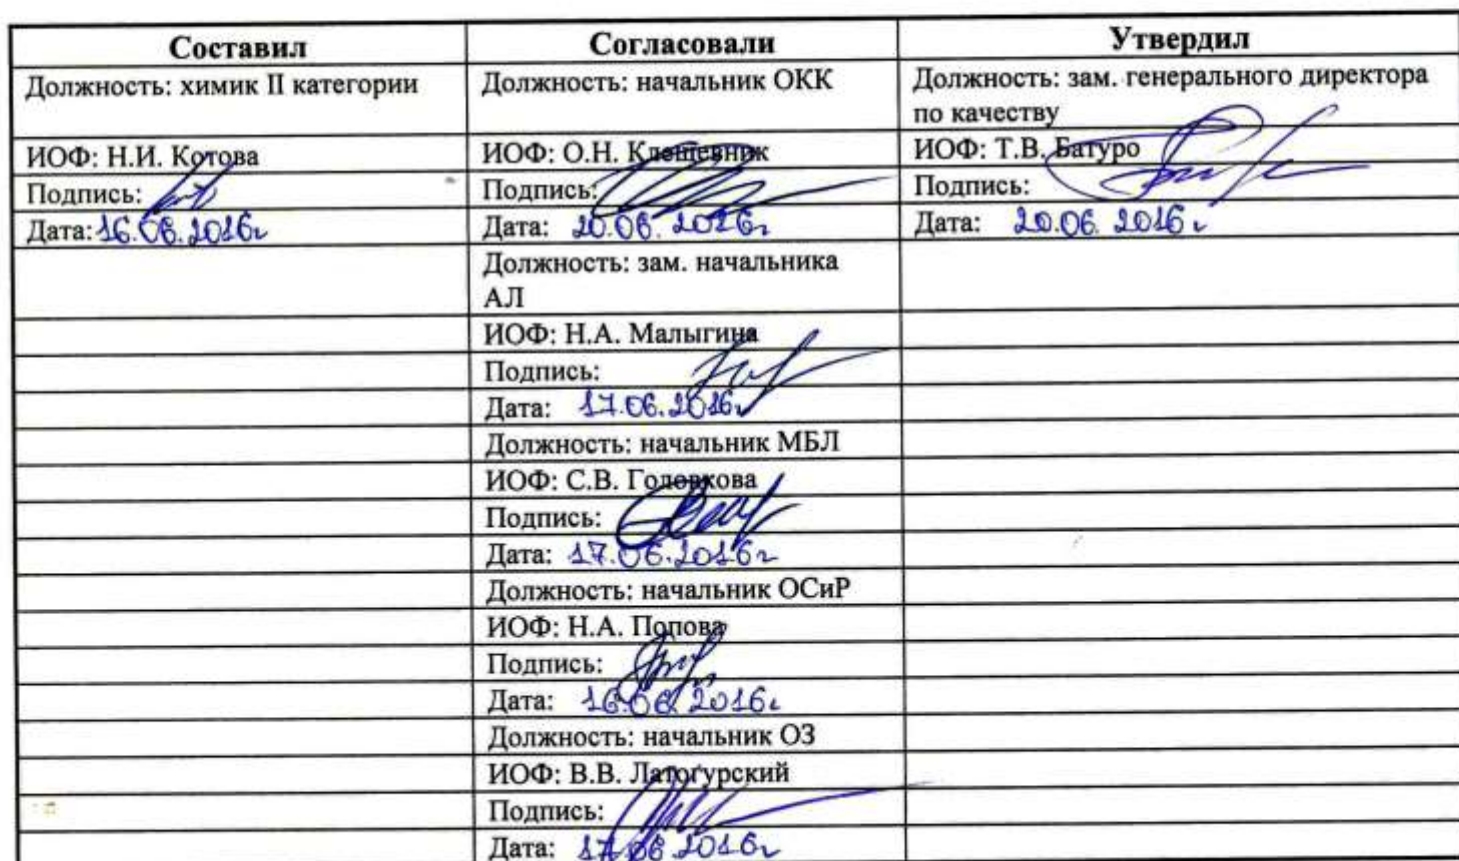 Составил Согласовали Утвердил
Должность: химик II категории Должность: начальник ОКК Должность: зам. генерального директора
по качеству
ИОФ: Н.И. Котова ИОФ: О.Н. Клещевник ИОФ: Т.В. Батуро
Подпись: Подпись: Подпись:
Дата: 16.06.2016г Дата: 20.06.2016г Дата: 20.06.2016г
Должность: зам. начальника
АЛ
ИОФ: Н.А. Малыгина
Подпись:
Дата: 17.06.2016г
Должность: начальник МБЛ
ИОФ: С.В. Головкова
Подпись:
Дата: 17.06.2016г
Должность: начальник ОСиР
ИОФ: Н.А. Попова
Подпись:
Дата: 16.06.2016г
Должность: начальник ОЗ
ИОФ: В.В. Латогурский
Подпись:
Дата: 17.06.2016г